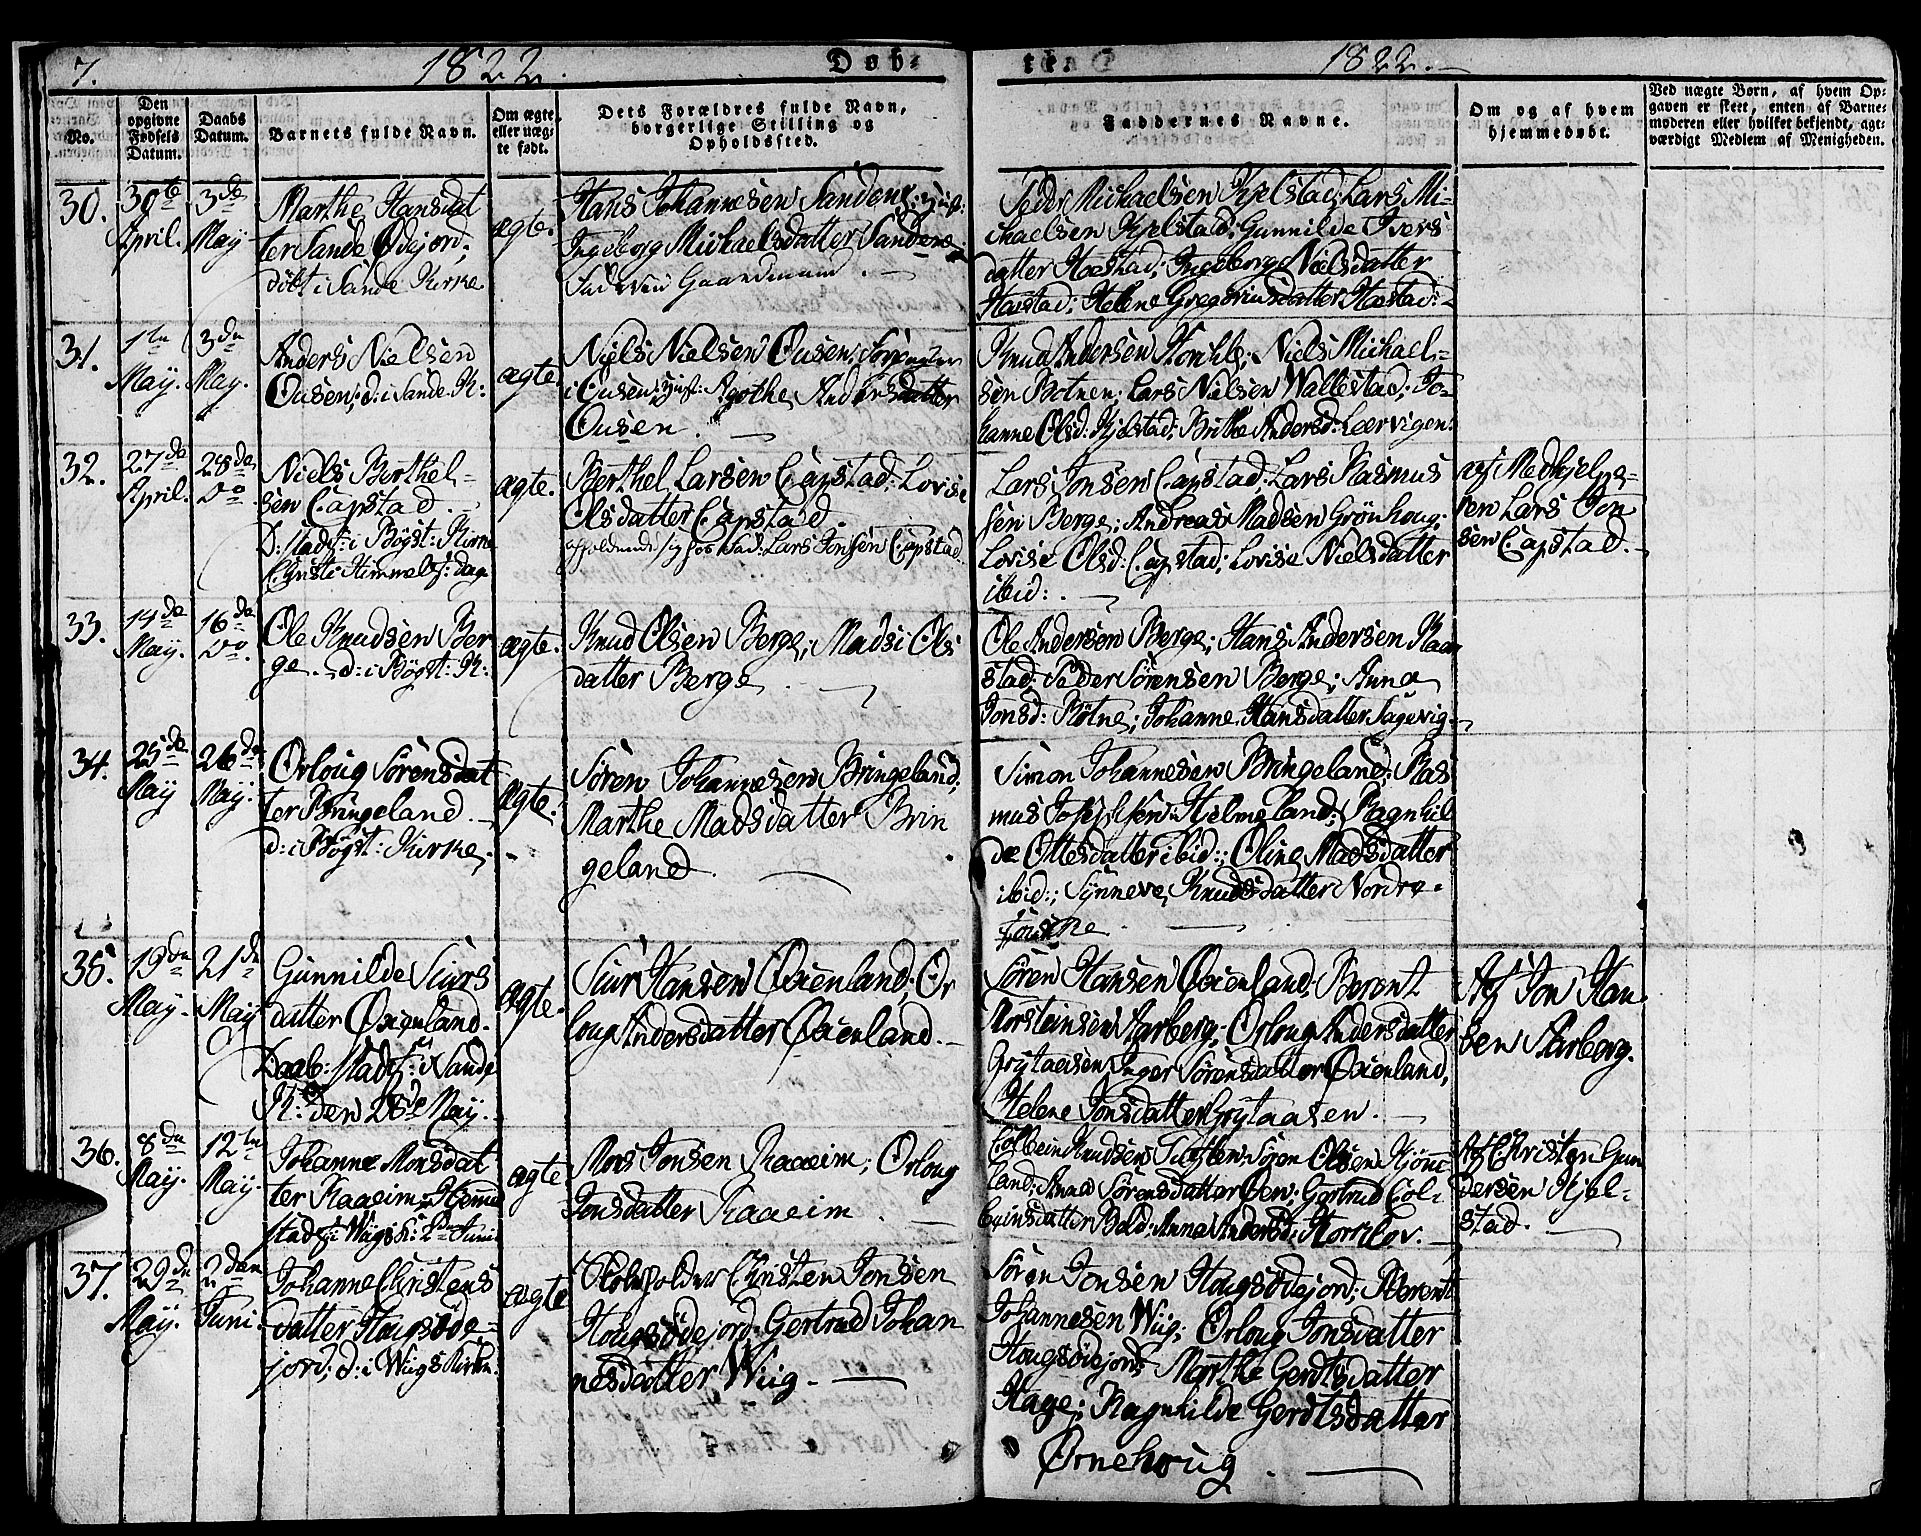 7. 1822. Døb-
te. 1822.
No.
Den opgivne Fødsels Datum.
Daabs Datum.
Barnets fulde Navn.
Om ægte eller uægte født.
Dets Forældres fulde Navn, borgerlige Stilling og Opholdssted.
Faddernes Navne.
Om og af hvem hjemmedøbt.
Ved uægte Børn, af hvem Op-
gaven er skeet, enten af Barne-
moderen eller hvilket bekjendt, agt-
værdigt Medlem af Menigheden.
30.
30te
April.
3de
May
Marthe Hansdat
ter Sande Ødejord;
döbt i Sande Kirke
ægte.
Hans Johannesen Sandene
Ingeborg Michaelsdatter Sandene
Gaardmand.
Peder Michaelsen Kjelstad; Lars Mi-
chaelsen Kjelstad; Gunnilde Ivers
datter Hæstad; Ingeborg Nielsdatter
Hæstad; Helene Gregoriusdatter Hæstad
31.
1te
May.
3de
May.
Anders Nielsen
Ousen; d: i Sande K:
ægte.
Niels Nielsen Ousen
i Ousen; Agothe Andersdatter
Ousen.
Knud Andersen Horkle; Niels Michael-
sen Botnen; Lars Nielsen Wallestad; Jo-
hanne Olsd: Kjelstad; Brithe Andersd: Leervigen.
32.
27de
April.
28de
Do
Niels Berthel-
sen Capstad.
D: stadf: i Bögst: Kirke
Christi Himmelf: dag
ægte.
Berthel Larsen Capstad; Lovise
Olsdatter Capstad.
opholdende sig hos Lars Jonsen Capstad
Lars Jonsen Capstad; Lars Rasmus
sen Berge; Andreas Madsen Grönhoug;
Lovise Olsd: Capstad; Lovise Nielsdatter
ibid:.
af Medhjelpe-
ren Lars Jon
sen Capstad.
33.
14de
May.
16de
Do.
Ole Knudsen Ber
ge. d: i Bögst: K:
ægte.
Knud Olsen Berge; Madsi Ols
datter Berge
Ole Andersen Berge; Hans Andersen Raa
stad; Peder Sörensen Berge; Anna
Jonsd: Botne; Johanne Hansdatter Sagevig.
34.
25de
May
26de
May.
Orloug Sörensdat
ter Bringeland.
d: i Bögst: Kirke.
ægte.
Sören Johannesen Bringeland;
Marthe Madsdatter Brin
geland.
Simon Johannesen Bringeland; Ras
mus Josephsen Hjelmeland; Ragnhil
de Ottesdatter ibid:; Oline Madsdatter
ibid:; Synneve Knudsdatter Nordre-
35.
19de
May.
21de
May
Gunnilde Siurs
datter Øxienland.
Daab: stadf: i Sande
K: den 28de May.
ægte.
Siur Hansen Øxienland; Or
loug Andersdatter Øxienland.
Sören Hansen Øxienland; Berent
Morsteinsen Aarberg; Orloug Andersdatter
Grytaasen; Inger Sörensdatter Øxienland,
Helene Jonsdatter Grytaasen.
Af Jon Han
sen Aarberg.
36.
8de
May.
12te
May.
Johanne Monsdat
ter Kaaeim; Hjemme
stadf: i Wiigs K: 2de Juni
ægte
Mons Jonsen Kaaeim; Orloug
Jonsdatter Kaaeim.
Colbein Knudsen Sören Olsen
land; Anna Sörensdatter Gertrud Col-
beinsdatter Anna Andersd:
Af Christen Gun
dersen Kjel-
stad.
37.
29de
May.
2den
Juni.
Johanne Christens
datter Hougsöde-
jord; d: i Wiigs Kirke.
ægte
Christen Jonsen
Hougsödejord; Gertrud Johan
nesdatter Wiig.
Sören Jonsen Hougsödejord; Berent
Johannesen Wiig; Orloug Jonsdatter
Hougsödejord; Marthe Gerdtsdatter
Hage; Ragnhilde Gerdtsdatter
Ørnehoug.